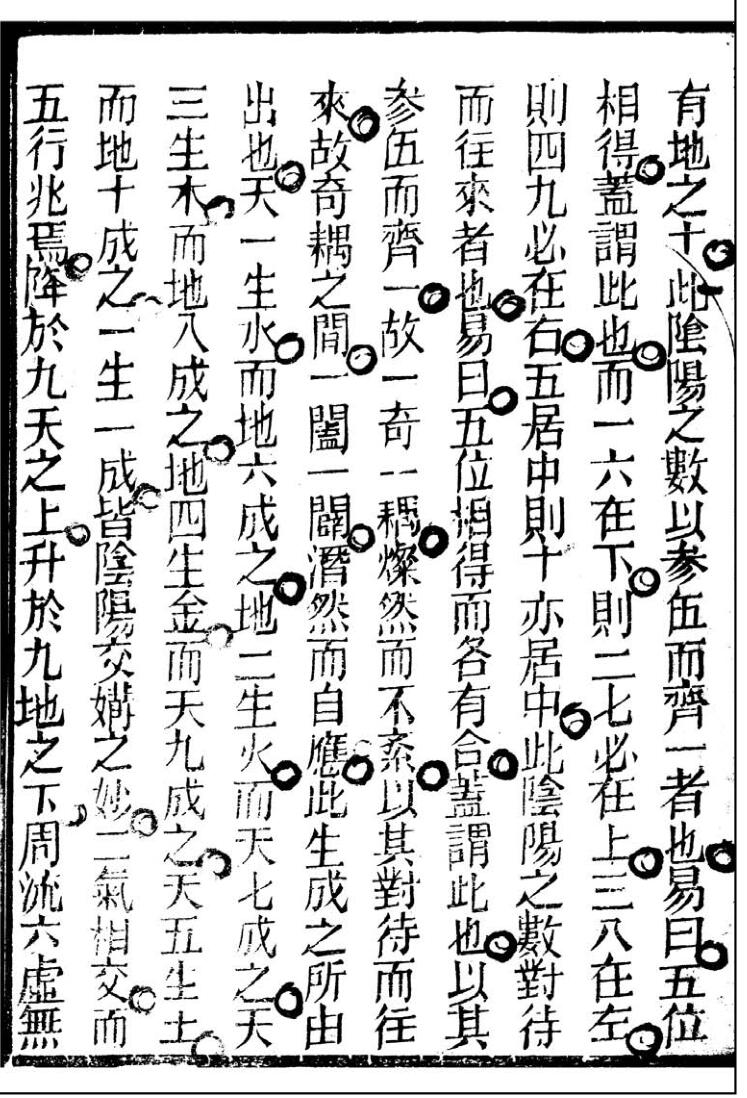 有地之十此陰陽之數以参伍而齊一者也易曰五位
相得蓋謂此也而一六在下則二七必在上三八在左
則四九必在右五居中則十亦居中此陰陽之數對待
而往來者也易曰五位相得而各有合蓋謂此也以其
参伍而齊一故一奇一耦燦然而不紊以其對待而往
來故奇耦之間一闔一闢潛然而自應此生成之所由
出也天一生水而地六成之地二生火而天七成之天
三生木而地八成之地四生金而天九成之天五生土
而地十成之一生一成皆陰陽交媾之妙二氣相交而
五行兆焉降於九天之上升於九地之下周流六虛無